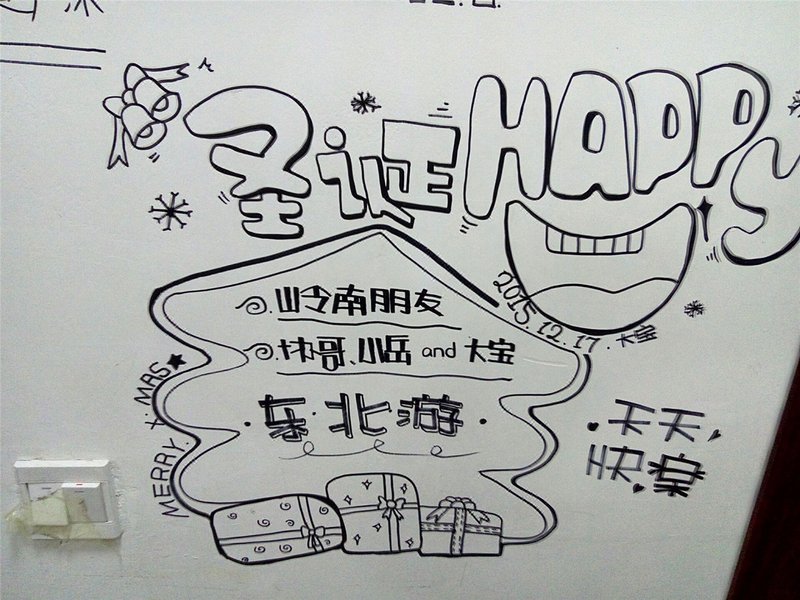 圣诞 HAPPY
岭南朋友
协哥、小岳 and 大宝
2015.12.17.大宝
·东·北游·
MERRY. X·MAS★
天天
快棠